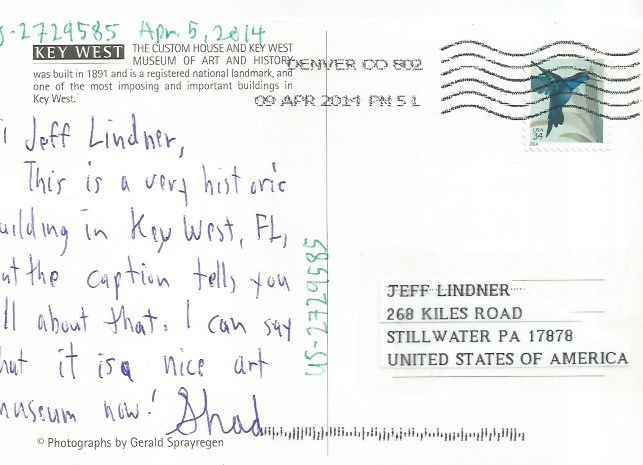 S-2729585 Apr. 5, 2014
KEY WEST THE CUSTOM HOUSE AND KEY WEST
MUSEUM OF ART AND HISTORY
was built in 1891 and is a registered national landmark, and
one of the most imposing and important buildings in
Key West.
DENVER CO 802
09 APR 2014 PM 5 L
USA
34
2014
i Jeff Lindner,
This is a very historic
uilding in Key West, FL,
ut the caption tells you
ll about that. I can say
hat it is a nice art
museum now! Shad
US-2729585
JEFF LINDNER
268 KILES ROAD
STILLWATER PA 17878
UNITED STATES OF AMERICA
© Photographs by Gerald Sprayregen